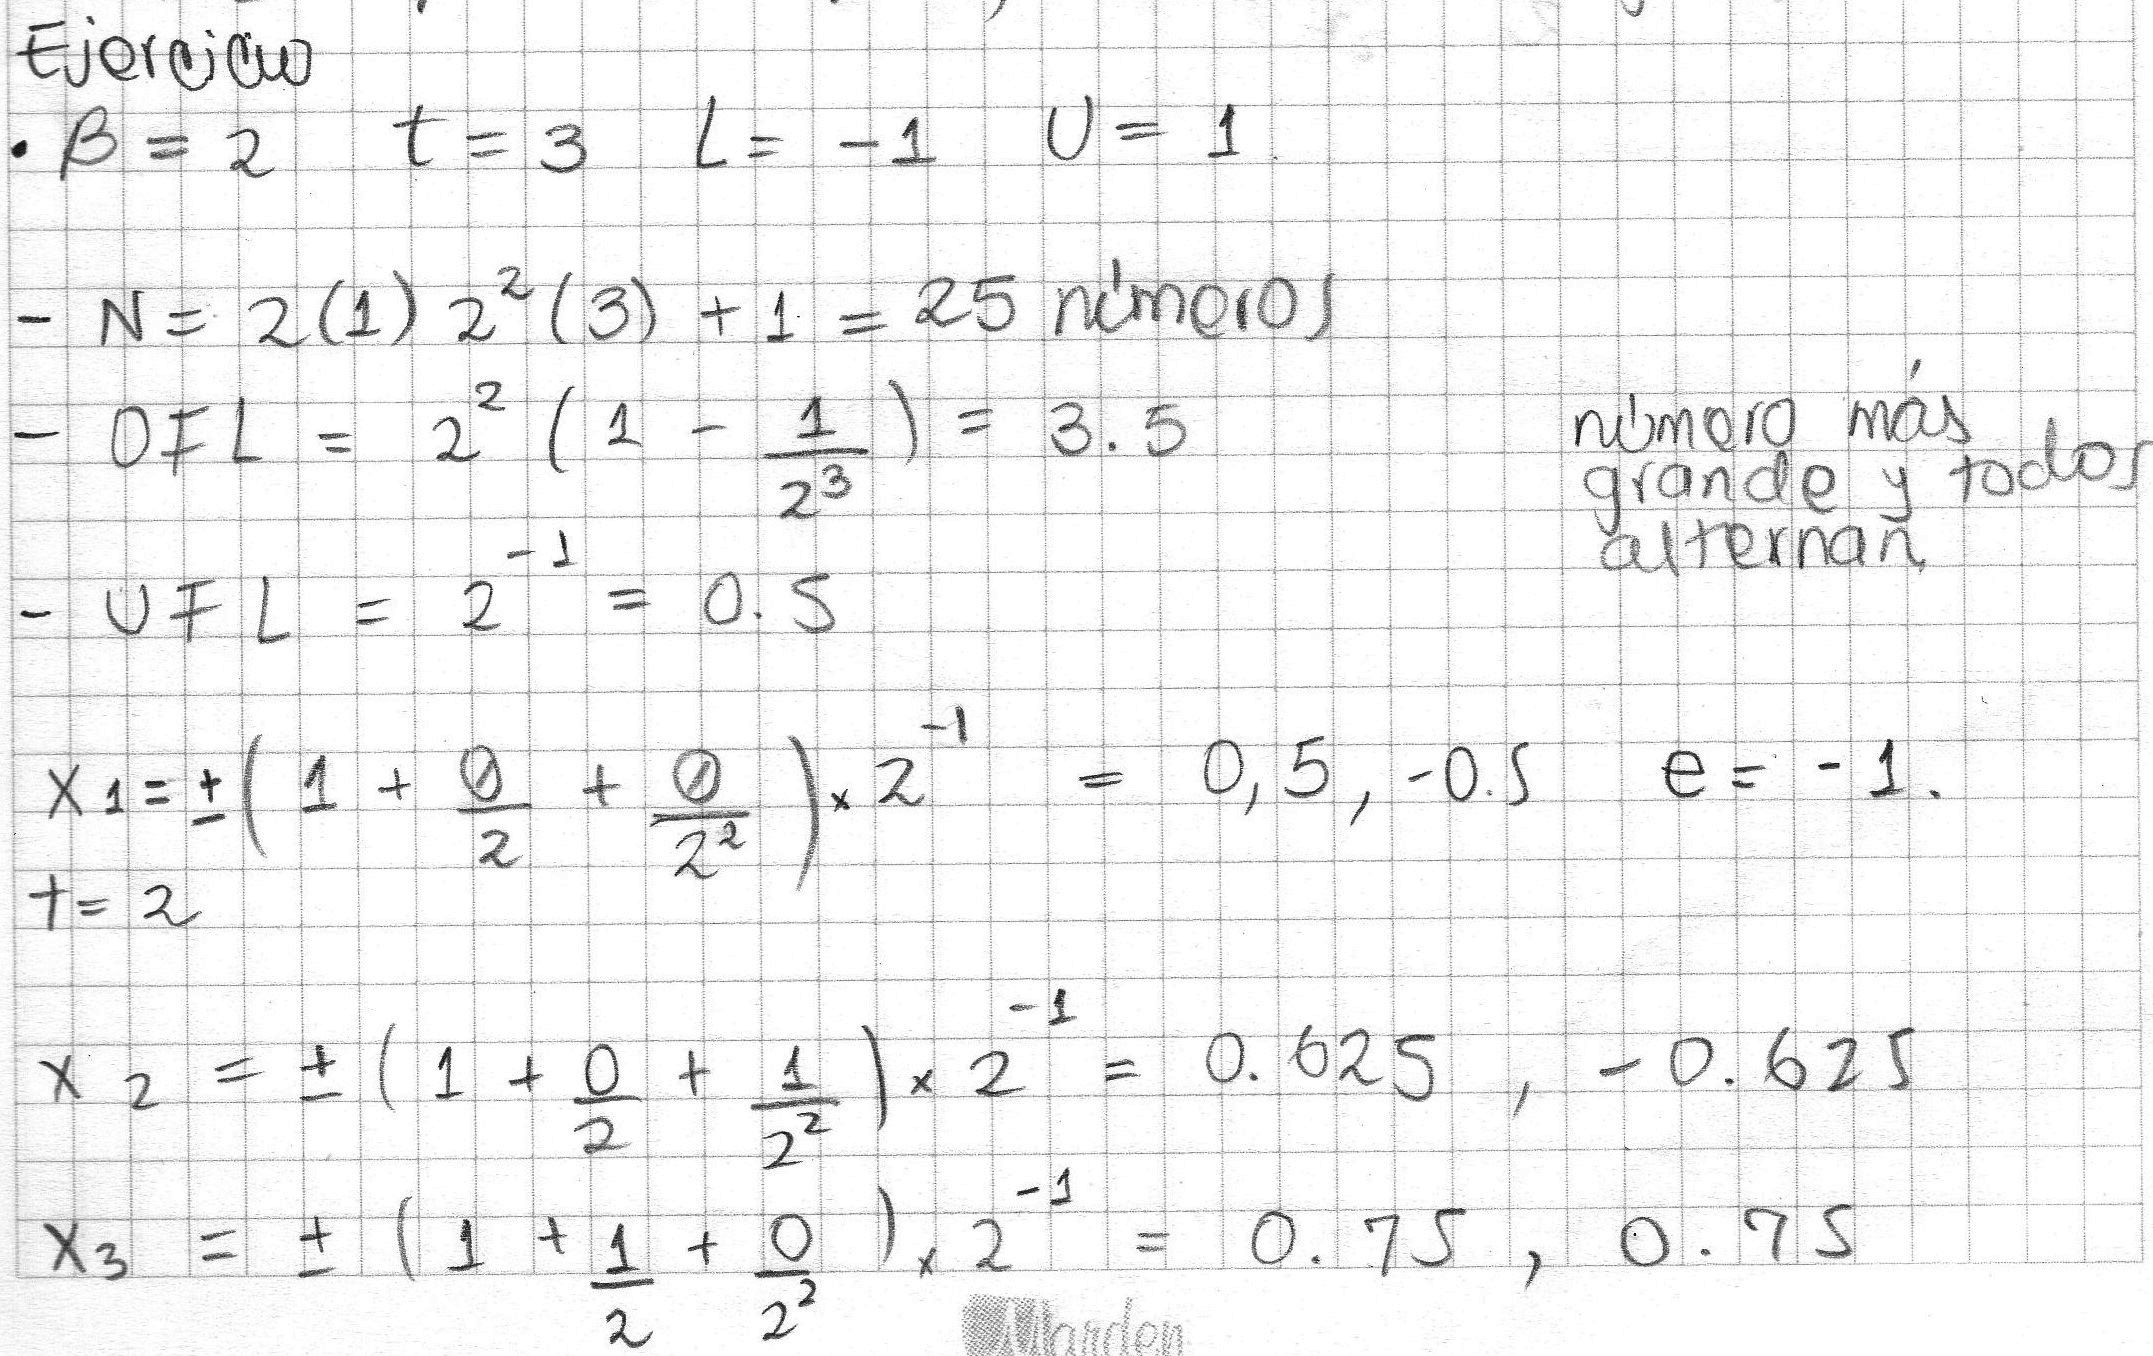 Ejercicio
• β = 2 t = 3 L = -1 U = 1
- N = 2(1) 2^2 (3) + 1 = 25 números
- OFL = 2^2 (1 - 1/2^3) = 3.5
número más
grande y todos
alternan
- UFL = 2^-1 = 0.5
X1 = ± (1 + 0/2 + 0/2^2) x 2^-1 = 0,5, -0.5 e = -1.
t = 2
X2 = ± (1 + 0/2 + 1/2^2) x 2^-1 = 0.625 , -0.625
X3 = ± (1 + 1/2 + 0/2^2) x 2^-1 = 0.75 , 0.75